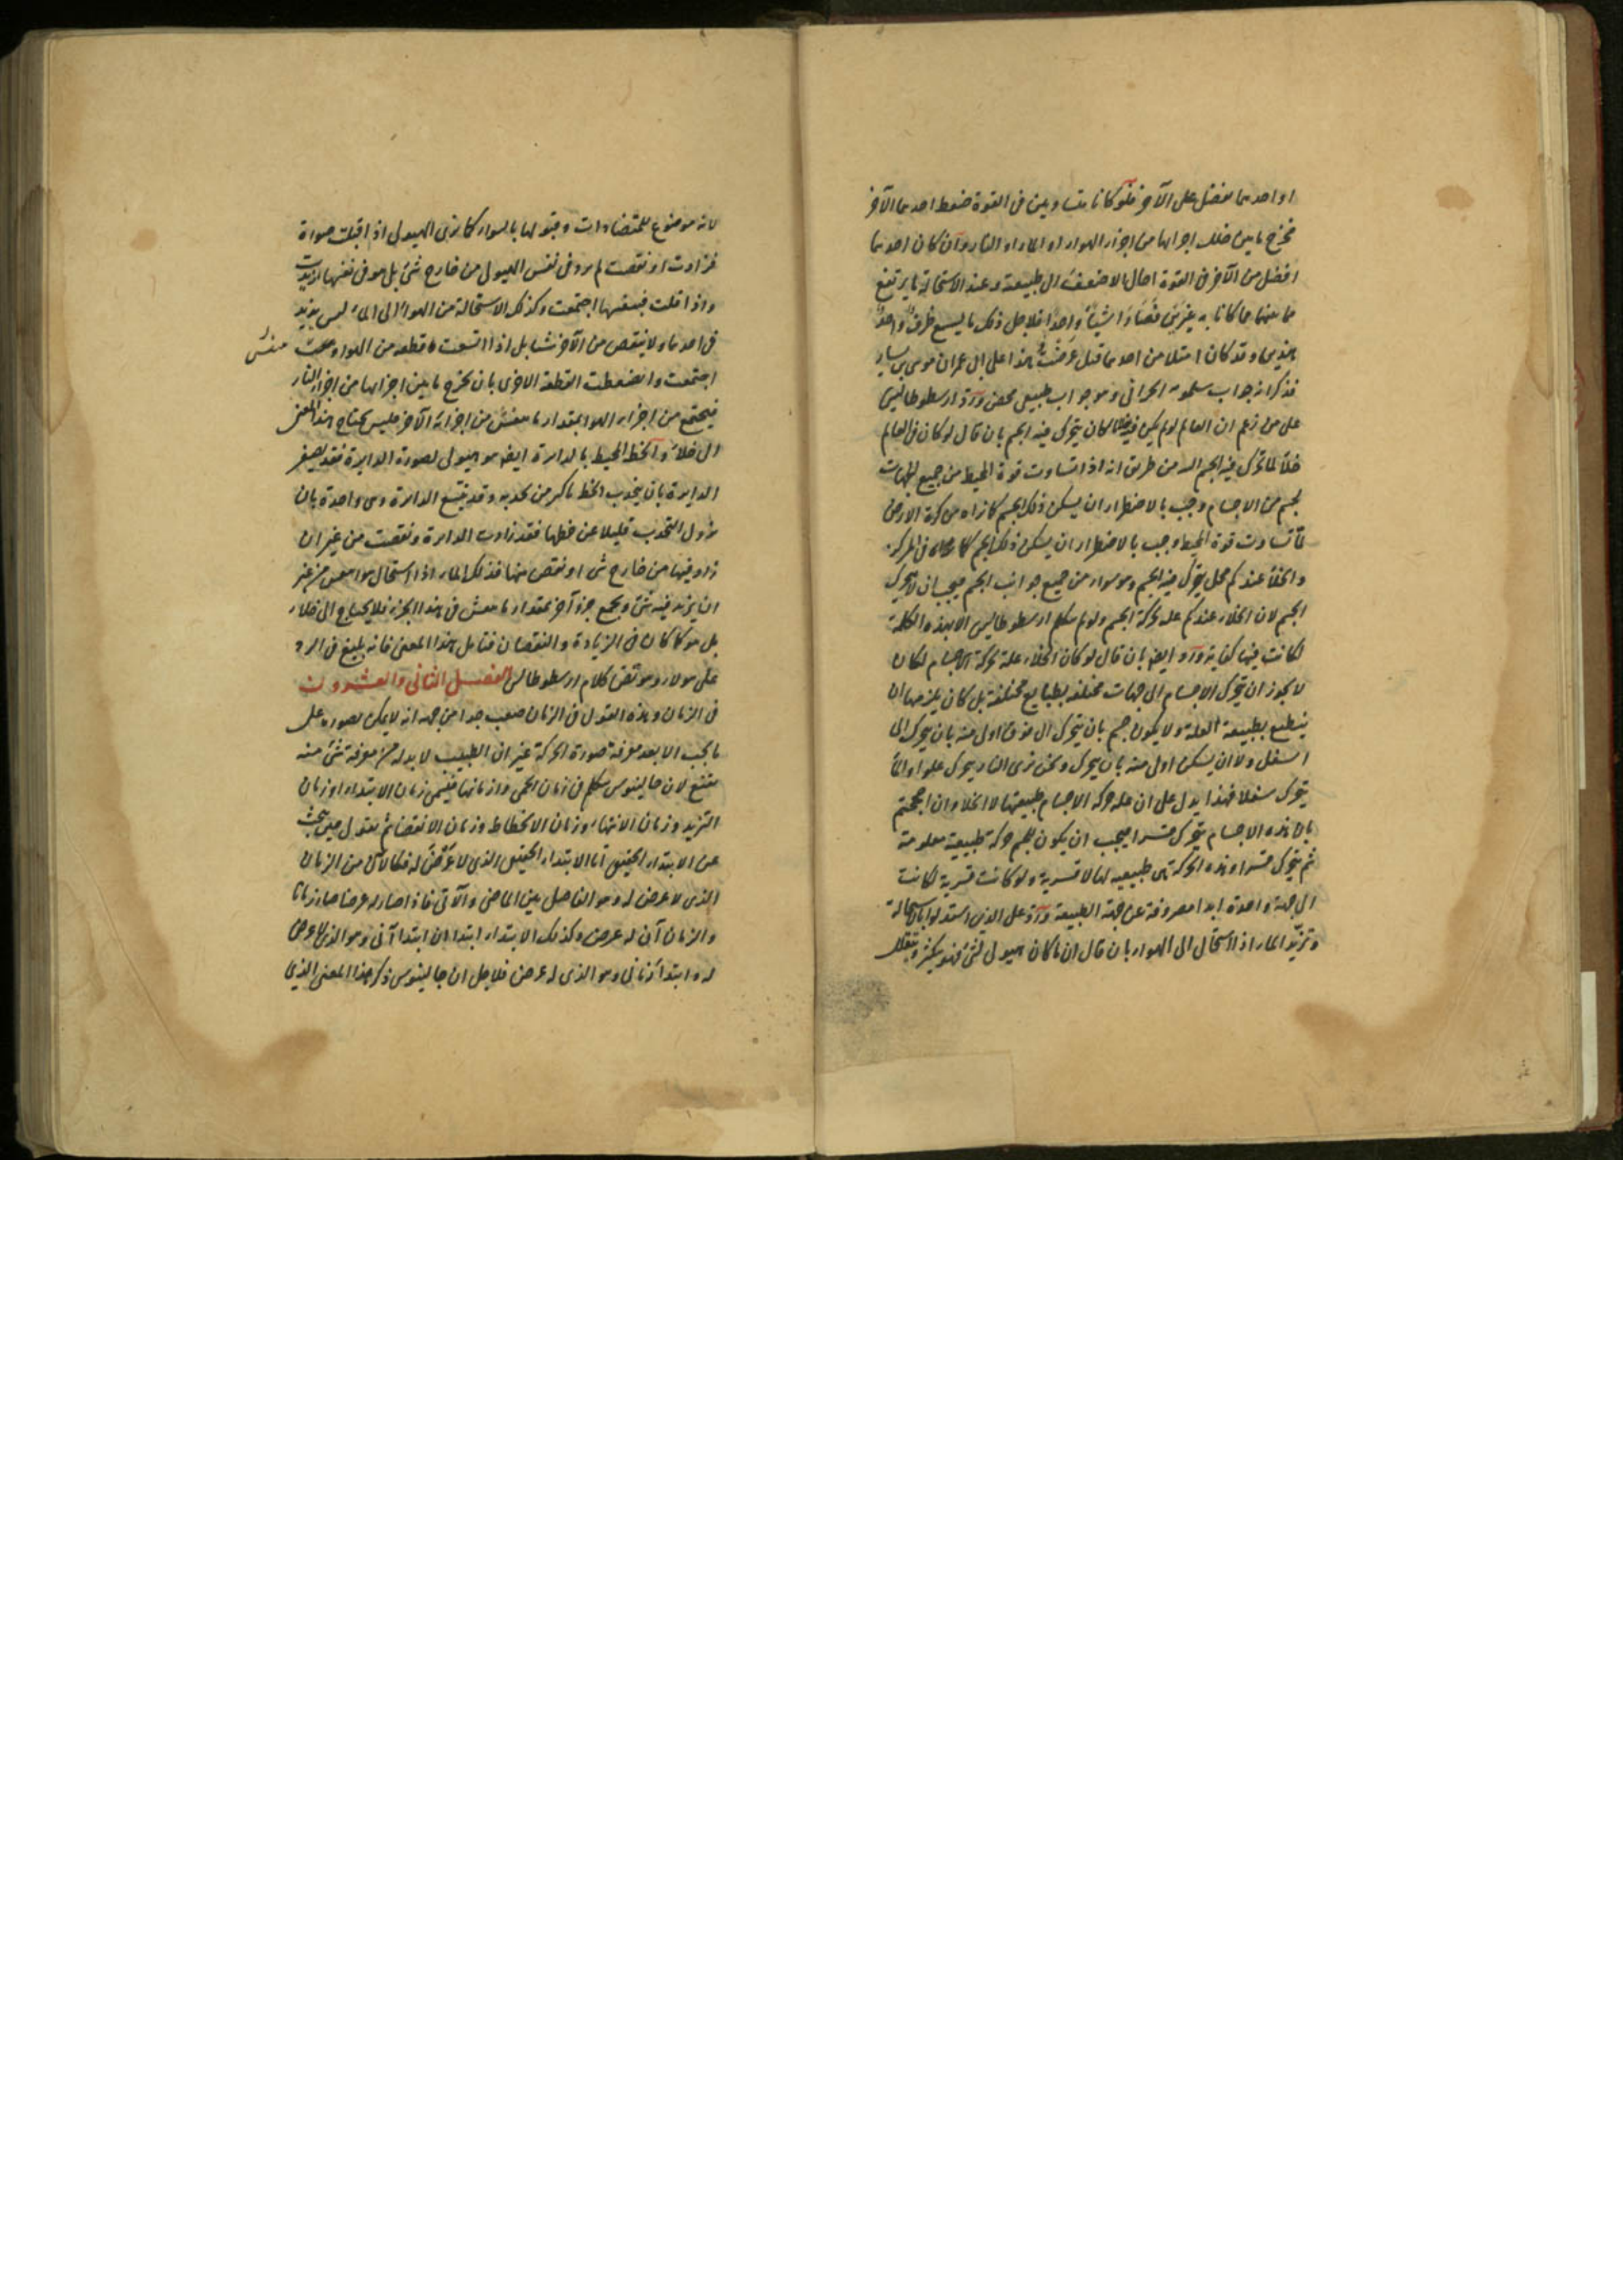 او احدهما يفضل على الآخر فلو كانا متساويين فى القوة ضغط احدهما الآخر
فخرج ما بين خلل اجزائها من اجزاء الهواء او الماء او النار وان كان احدهما
افضل من الآخر فى القوة احال الاضعف الى طبيعته وعند الاستحالة ما يرتفع
ما بينهما ما كانا به غيرين فصارا شيئا واحدا فلاجل ذلك ما يسع ظرف واحد
هذين وقد كان امتلا من احدهما قبل عرضت هذا على ابى عمران موسى بن سيار
فذكر انه جواب سلمويه الحرانى وهو جواب طبيعى محض ورد ارسطوطاليس
على من زعم ان العالم لو لم يكن فيه خلا لما كان يتحرك فيه الجسم بان قال لو كان فى العالم
خلا لما تحرك فيه الجسم البتة من طريق انه اذا تساوت قوة المحيط من جميع الجهات
لجسم من الاجسام وجب بالاضطرار ان يسكن ذلك الجسم كما نراه من كرة الارض
لما تساوت قوة المحيط وجب بالاضطرار ان يسكن ذلك الجسم فى المركز
والخلا عندكم محل يتحرك فيه الجسم وهو سواء من جميع جوانب الجسم فيجب ان لا يتحرك
الجسم لان الخلاء عندكم علة لحركة الجسم ولو لم يتكلم ارسطوطاليس الا بهذه الكلمة
لكانت فيها كفاية ورد ايضا بان قال لو كان الخلاء علة لحركة الاجسام لكان
لا يجوز ان يتحرك الاجسام الى جهات مختلفة بطبايع مختلفة بل كان يلزمها ان
ينطبع بطبيعة العلة ولا يكون جسم بان يتحرك الى فوق اولى منه بان يتحرك الى
اسفل ولا ان يسكن اولى منه بان يتحرك ونحن نرى النار يتحرك علوا والماء
يتحرك سفلا فهذا يدل على ان علة حركة الاجسام طبيعتها لا الخلا وان احتججتم
بان هذه الاجسام يتحرك قسرا فيجب ان يكون للجسم حركة طبيعية معلومة
ثم يتحرك قسرا وهذه الحركة هى طبيعية لها لا قسرية ولو كانت قسرية لكانت
الى جهة واحدة ابدا مصروفة عن جهة الطبيعة ورد على الذين استدلوا باستحالة
وتزيد الماء اذا استحال الى الهواء بان قال ان ما كان هيولى لشئ فهو يكثر ويتقلل
لانه موضوع للمتضادات وقبولها بالسواء كما نرى الهيولى اذا قبلت صورة
فزادت او نقصت لم يرد فى نفس الهيولى من خارج شئ بل هو فى نفسها ازدادت
واذا قلت فبنفسها اجتمعت وكذلك الاستحالة من الهواء الى الماء ليس يزيد
فى احدهما ولا ينقص من الآخر شيئا بل اذا اتسعت قطعة من الهواء وتفشت
اجتمعت وانضغطت القطعة الاخرى بان يخرج ما بين اجزائها من اجزاء النار
فيجتمع من اجزاء الهواء بمقدار ما يتفش من اجزاء الآخر فليس يحتاج هذا المعنى
الى خلاء والخط المحيط بالدايرة ايضا هو هيولى لصورة الدايرة فقد يصغر
الدايرة بان يتحدب الخط باكبر من تحدبه وقد يتسع الدايرة وهى واحدة بان
يزول التحدب قليلا عن خطها فقد زادت الدايرة ونقصت من غير ان
زاد فيها من خارج شئ او نقص منها فذلك الماء اذا استحال هواء من غير
ان يزيد فيه شئ ويجمع جزء آخر بمقدار ما يتفش فى هذا الجزء فلا يحتاج الى خلاء
بل هو كما كان فى الزيادة والنقصان فتامل هذا المعنى فانه بليغ فى الرد
على هولاء وهو نقض كلام ارسطوطاليس الفصل الثانى والعشرون
فى الزمان وهذه القول فى الزمان صعب جدا من جهة انه لا يمكن تصوره على
ما يجب الا بعد معرفة صورة الحركة غير ان الطبيب لا بد له من معرفة شئ منه
مقنع لان جالينوس يتكلم فى زمان الحمى وازمانها فيسمى زمان الابتداء او زمان
التزيد وزمان الانتهاء وزمان الانحطاط وزمان الانقضاء ثم يقول حين يبحث
عن الابتداء الحقيقى اما الابتداء الحقيقى الذى لا عرض له فكالآن من الزمان
الذى لا عرض له وهو الفاصل بين الماضى والآتى فاذا صار له عرضا صار زمانا
والزمان آن له عرض وكذلك الابتداء ابتداان ابتدا آنى وهو الذى لا عرض
له وابتدا زمانى وهو الذى له عرض فلاجل ان جالينوس ذكر هذا المعنى الذى